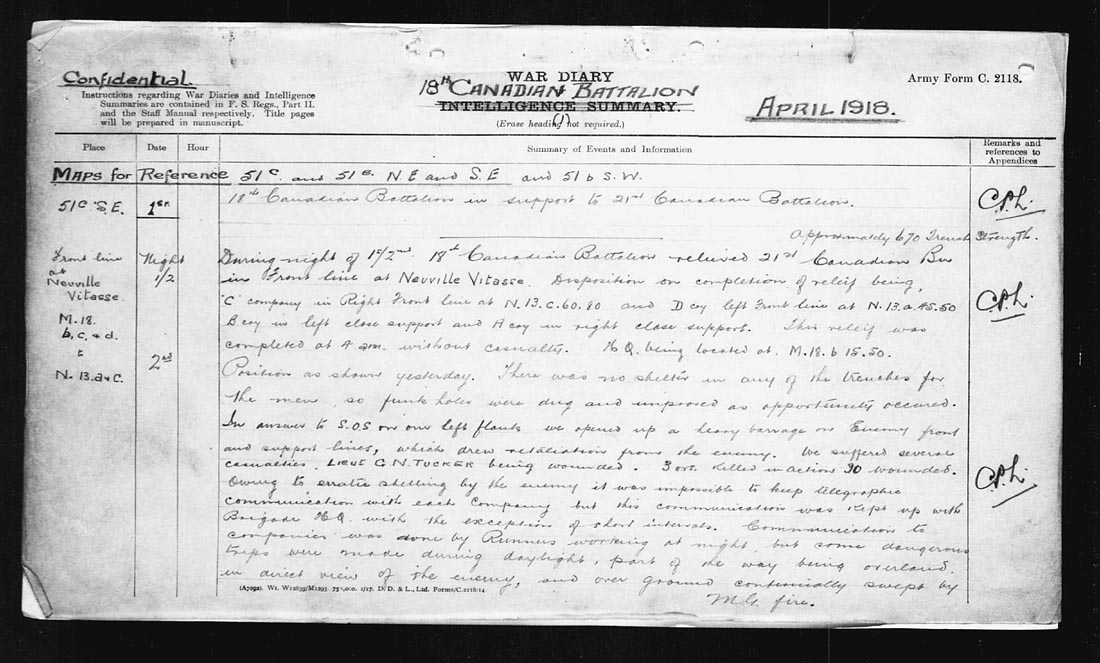 Confidential.
Instructions regarding War Diaries and Intelligence
Summaries are contained in F. S. Regs., Part II.
and the Staff Manual respectively. Title pages
will be prepared in manuscript.
WAR DIARY
18TH CANADIAN BATTALION
INTELLIGENCE SUMMARY.
(Erase heading not required.)
(1)
Army Form C. 2118.
APRIL 1918.
Place Date Hour Summary of Events and Information Remarks and references to Appendices
MAPS for Reference 51c. and 51B. N.E and S.E and 51b S.W.
51c S.E. 1st. 18th Canadian Battalion in support to 21st Canadian Battalion.
approximately 670 Trench Strength.
Front line at Neuville Vitasse. M.18. b, c, & d. & N.13.a & c.
Night 1/2 During night of 1st/2nd. 18th Canadian Battalion relieved 21st Canadian Bn
in Front line at Neuville Vitasse. Disposition on completion of releif being,
"C" company in Right Front line at N.13.C.60.80 and D coy left Front line at N.13.a.45.50
B coy in left close support and A coy in right close support. This releif was
completed at 4 am. without casualties. H Q. being located at M.18.b 15.50.
2nd Position as shown yesterday. There was no shelter in any of the trenches for
the men, so funk holes were dug and improved as opportunity occured.
In answer to S.O.S on our left flank we opened up a heavy barrage on Enemy front
and support lines, which drew retaliation from the enemy. We suffered several
casualties, LIEUT C.N. TUCKER being wounded. 3 ors. Killed in action 30 wounded.
Owing to erratic shelling by the enemy it was impossible to keep telegraphic
communication with each Company but this communication was kept up with
Brigade HQ. with the exception of short intervals. Communication to
companies was done by Runners working at night, but some dangerous
trips were made during daylight, part of the way being overland
in direct view of the enemy, and over ground continually swept by
M.G. fire.
(A7092). Wt. W12839/M1293 75,0,000. 1/17. D. D. & L., Ltd. Forms/C.2118/14.